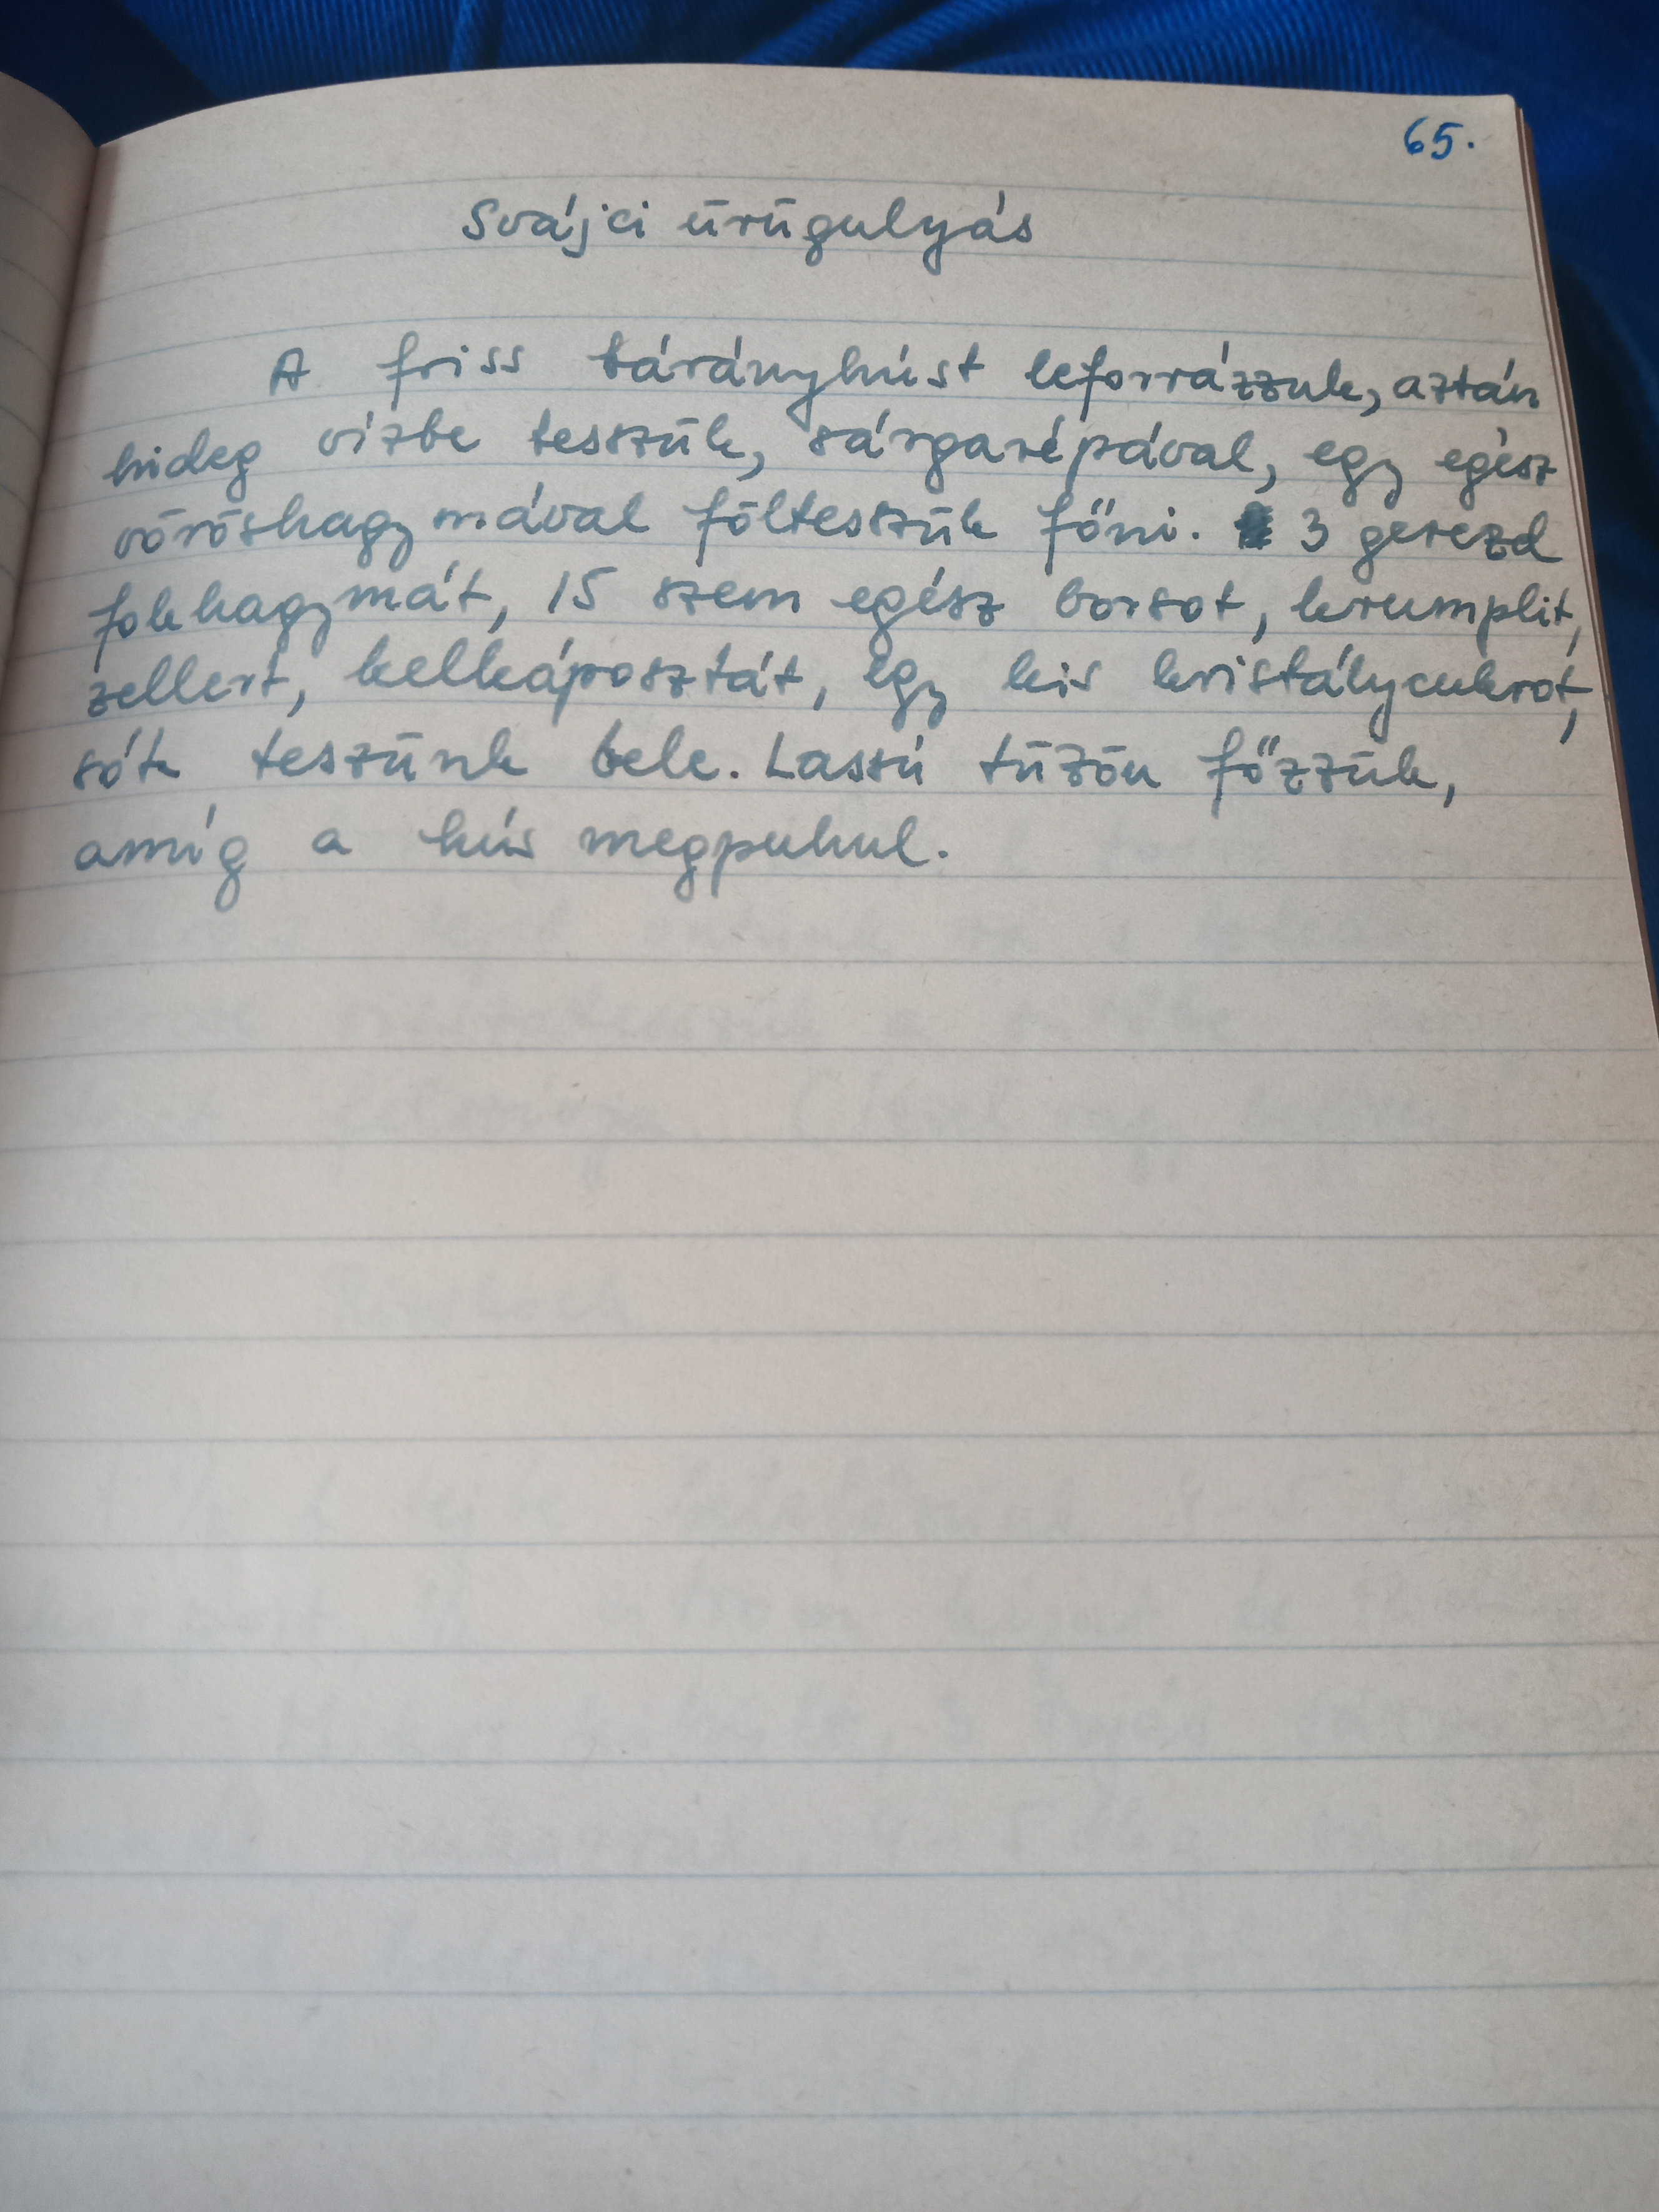 65.
Svájci ürügulyás
A friss bárányhúst leforrázzuk, aztán
hideg vízbe tesszük, sárgarépával, egy egész
vöröshagymával föltesszük főni. 3 gerezd
fokhagymát, 15 szem egész borsot, krumplit,
zellert, kelkáposztát, egy kis kristálycukrot,
sót teszünk bele. Lassú tűzön főzzük,
amíg a hús megpuhul.